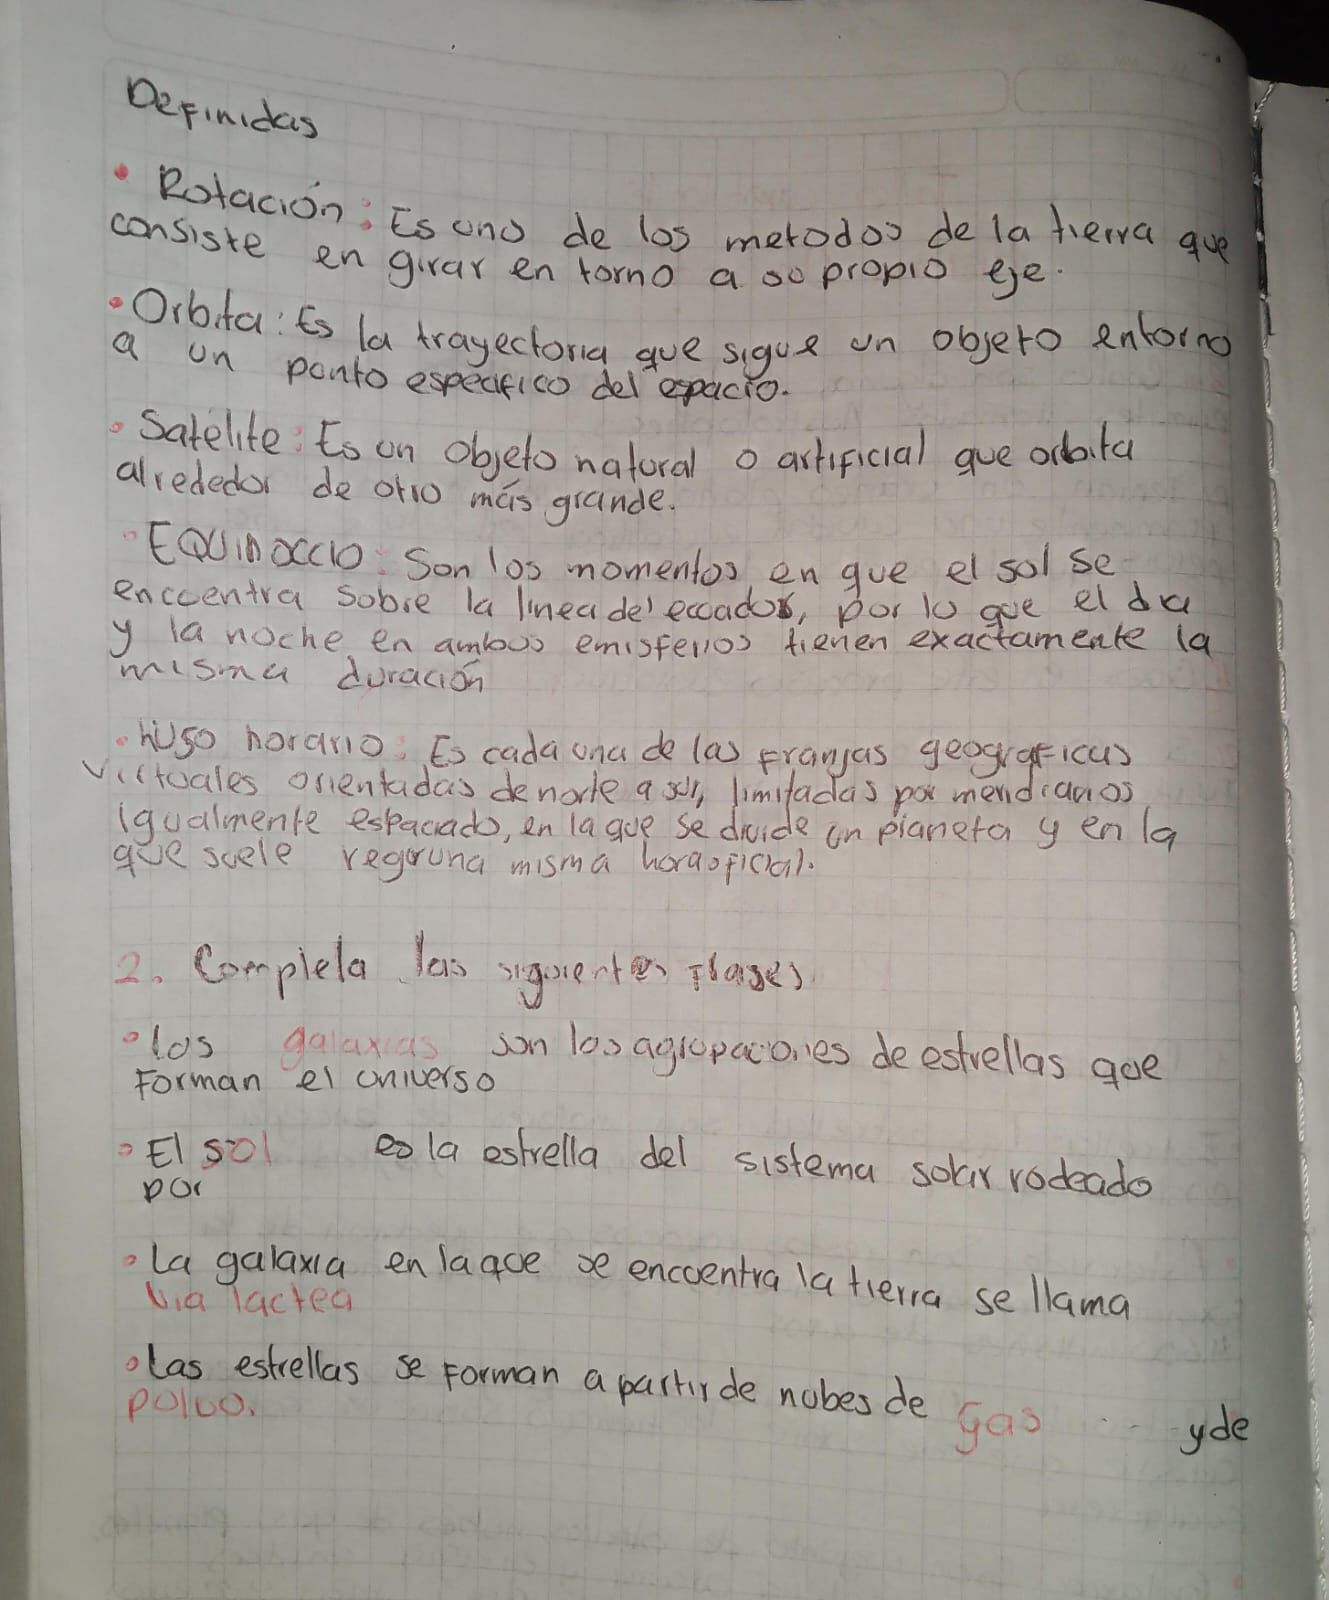 Definidas
• Rotación: Es uno de los metodos de la tierra que
consiste en girar en torno a su propio eje.
• Orbita: Es la trayectoria que sigue un objeto entorno
a un punto especifico del espacio.
• Satélite: Es un objeto natural o artificial que orbita
alrededor de otro más grande.
• EQUINOCCIO: Son los momentos en que el sol se
encuentra sobre la linea del ecuador, por lo que el dia
y la noche en ambos emisferios tienen exactamente la
misma duración
• huso horario: Es cada una de las franjas geograficas
virtuales orientadas de norte a sur, limitadas por meridianos
igualmente espaciado, en la que se divide un planeta y en la
que suele regir una misma hora oficial.
2. Completa las siguientes frases
• los galaxias son las agrupaciones de estrellas que
Forman el universo
• El sol es la estrella del sistema solar rodeado
por
• La galaxia en la que se encuentra la tierra se llama
via lactea
• Las estrellas se forman a partir de nubes de gas y de
polvo.